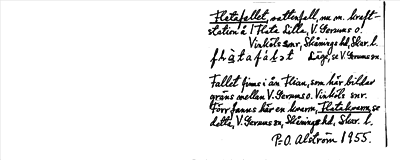 Flatafallet, vattenfall, nu m. kraft-
station å 1 Flata Lilla, V. Gerums o.
Vinköls snr, Skånings hd, Skar. l.
Läge, se V. Gerums sn.
Fallet finns i ån Flian, som här bildar
gräns mellan V. Gerums o. Vinköls snr.
Förr fanns här en kvarn, Flatakvarn, se
detta, V. Gerums sn, Skånings hd, Skar. l.
P.O. Alström 1955.